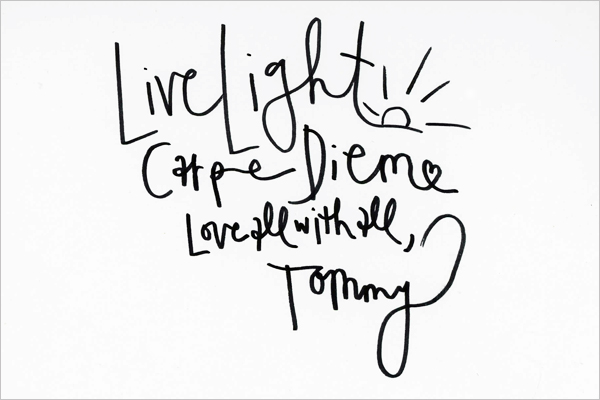 Live Light
Carpe Diem
Love all with all,
Tommy